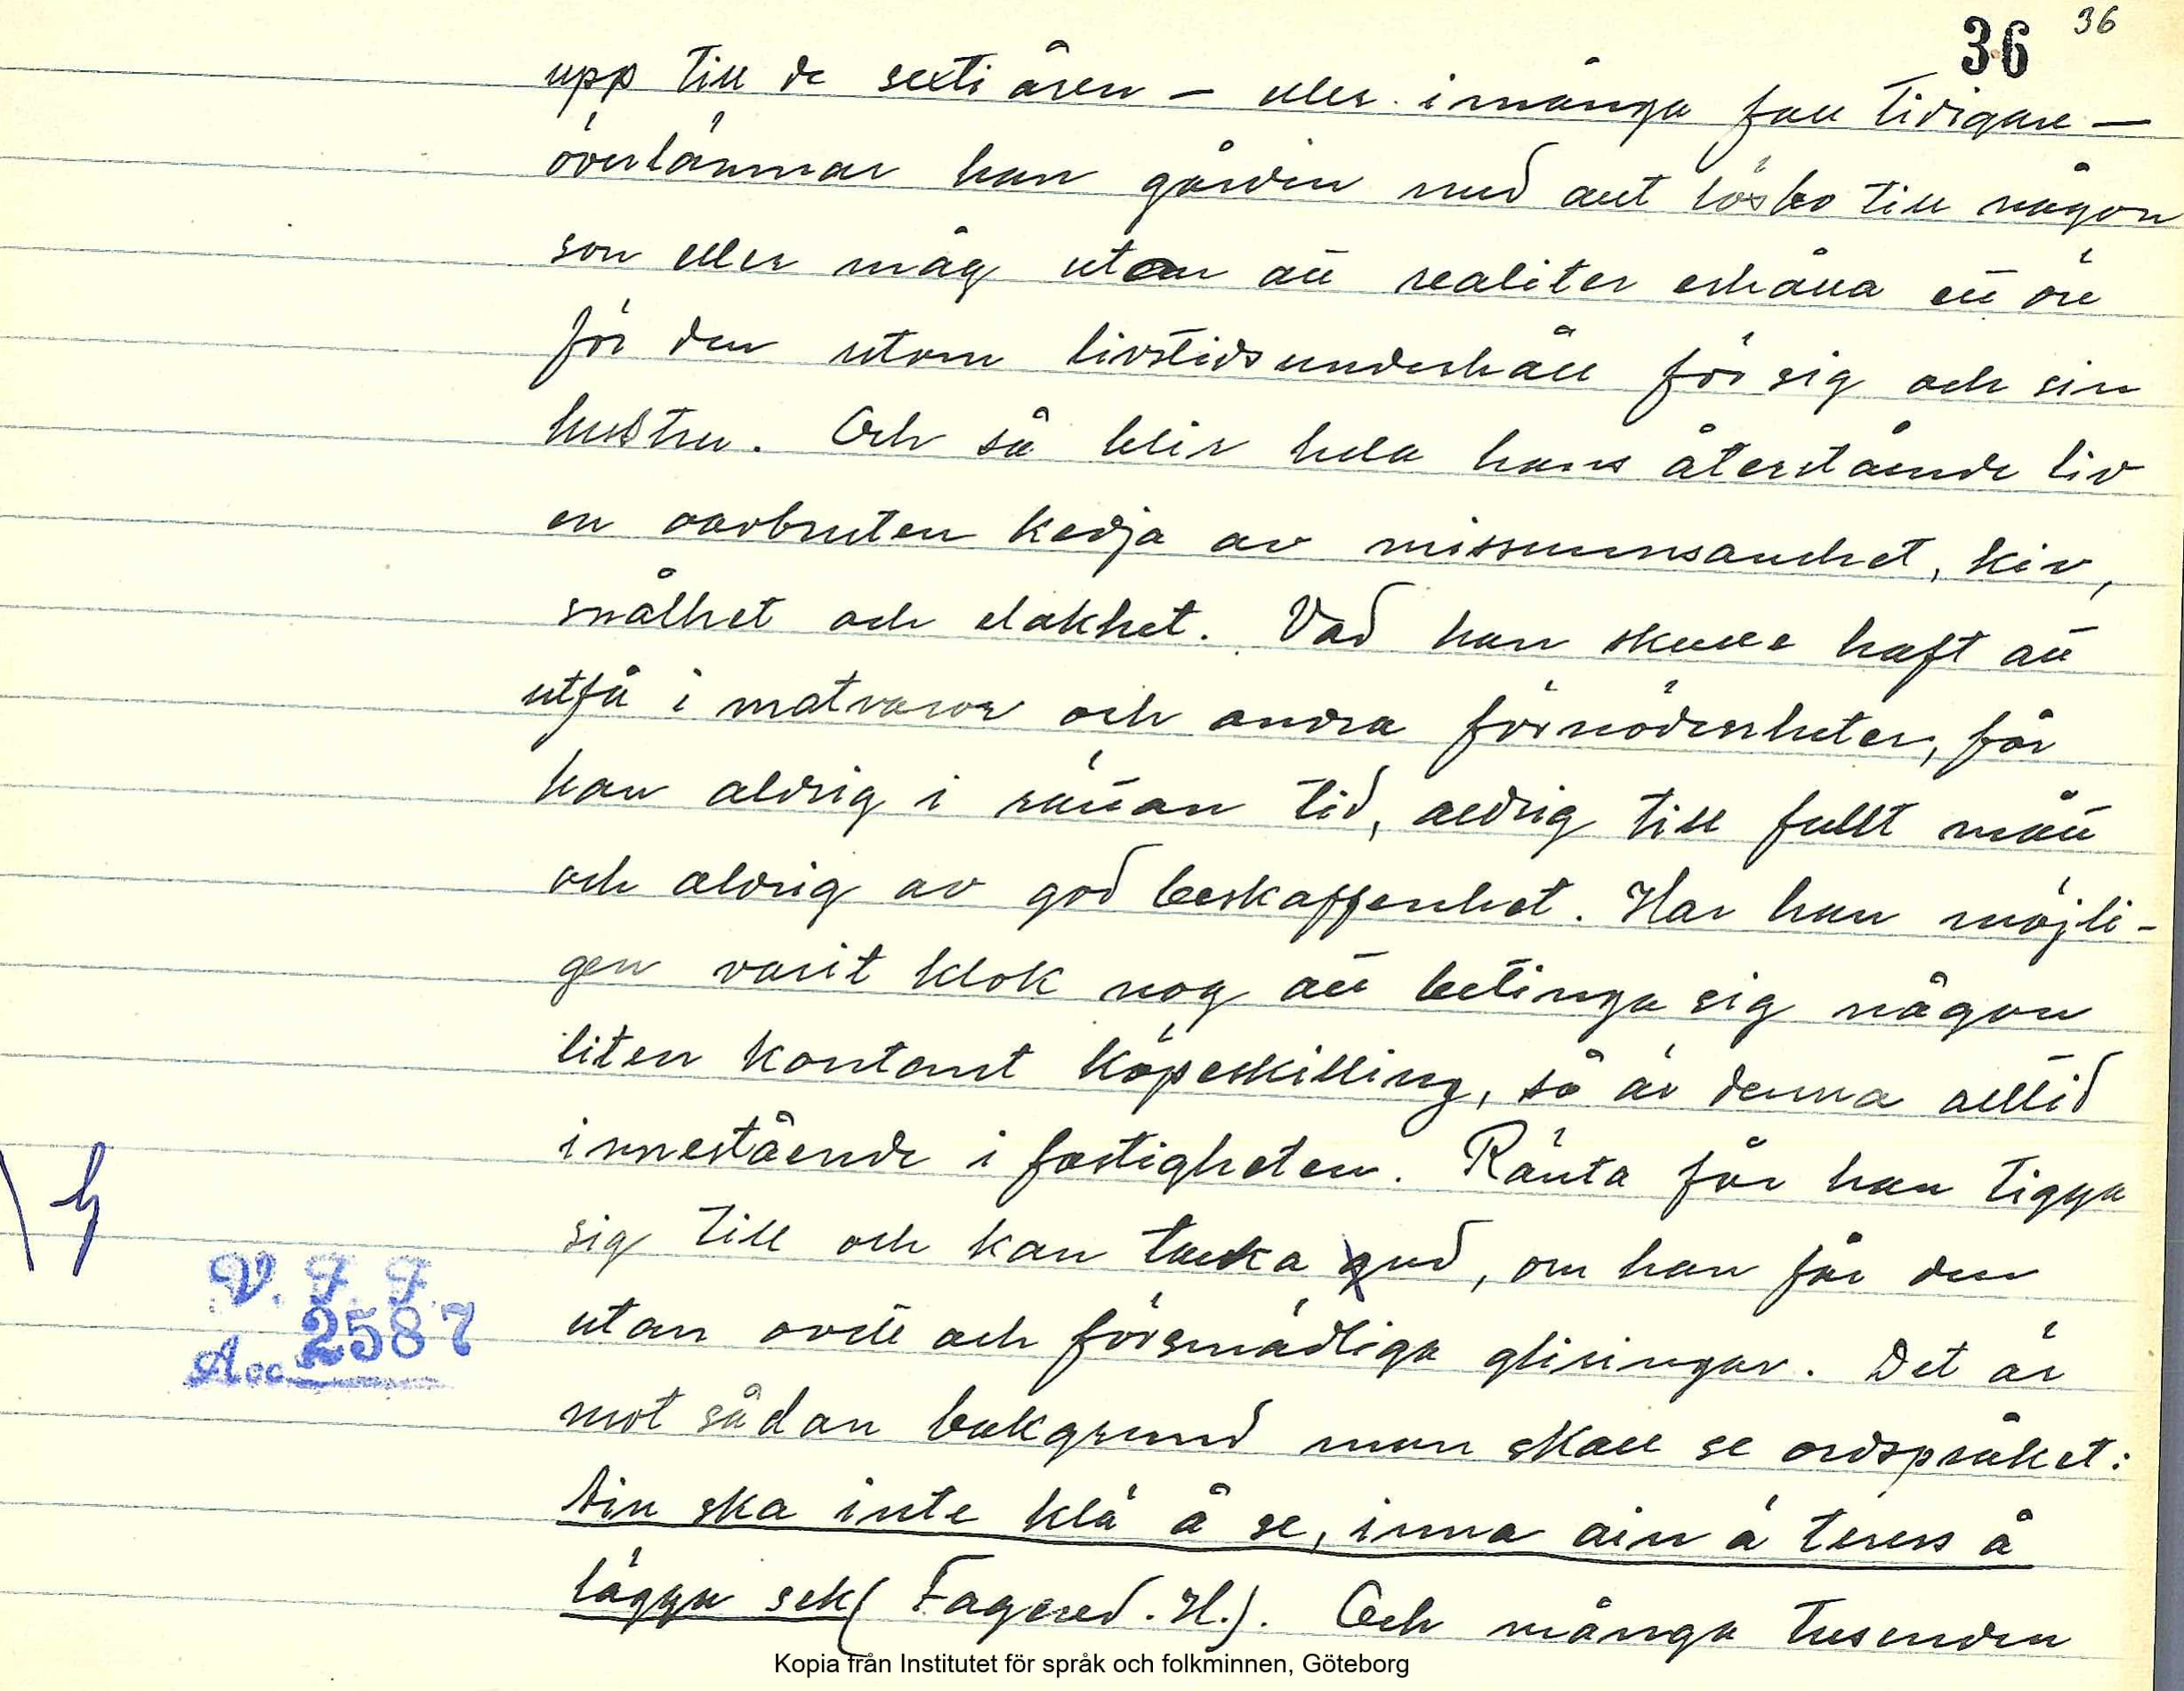 36 36
upp till de sexti åren – eller i många fall tidigare –
överlämnar han gården med allt lösbo till någon
son eller måg utan att realiter erhålla ett öre
för den utom livstidsunderhåll för sig och sin
hustru. Och så blir hela hans återstående liv
en oavbruten kedja av missunnsamhet, kiv,
snålhet och elakhet. Vad han skulle haft att
utfå i matvaror och andra förnödenheter, får
han aldrig i rättan tid, aldrig till fullt mått
och aldrig av god beskaffenhet. Har han möjli-
gen varit klok nog att betinga sig någon
liten kontant köpeskilling, så är denna alltid
innestående i fastigheten. Ränta får han tigga
sig till och kan tacka gud, om han får den
utan ovett och försmädliga glisingar. Det är
mot sådan bakgrund man skall se ordspråket:
Ain ska inte klä å se, inna ain ä teress å
lägga sek (Fagered. H.). Och många tusenden
V. F. F.
Acc. 2587
Kopia från Institutet för språk och folkminnen, Göteborg